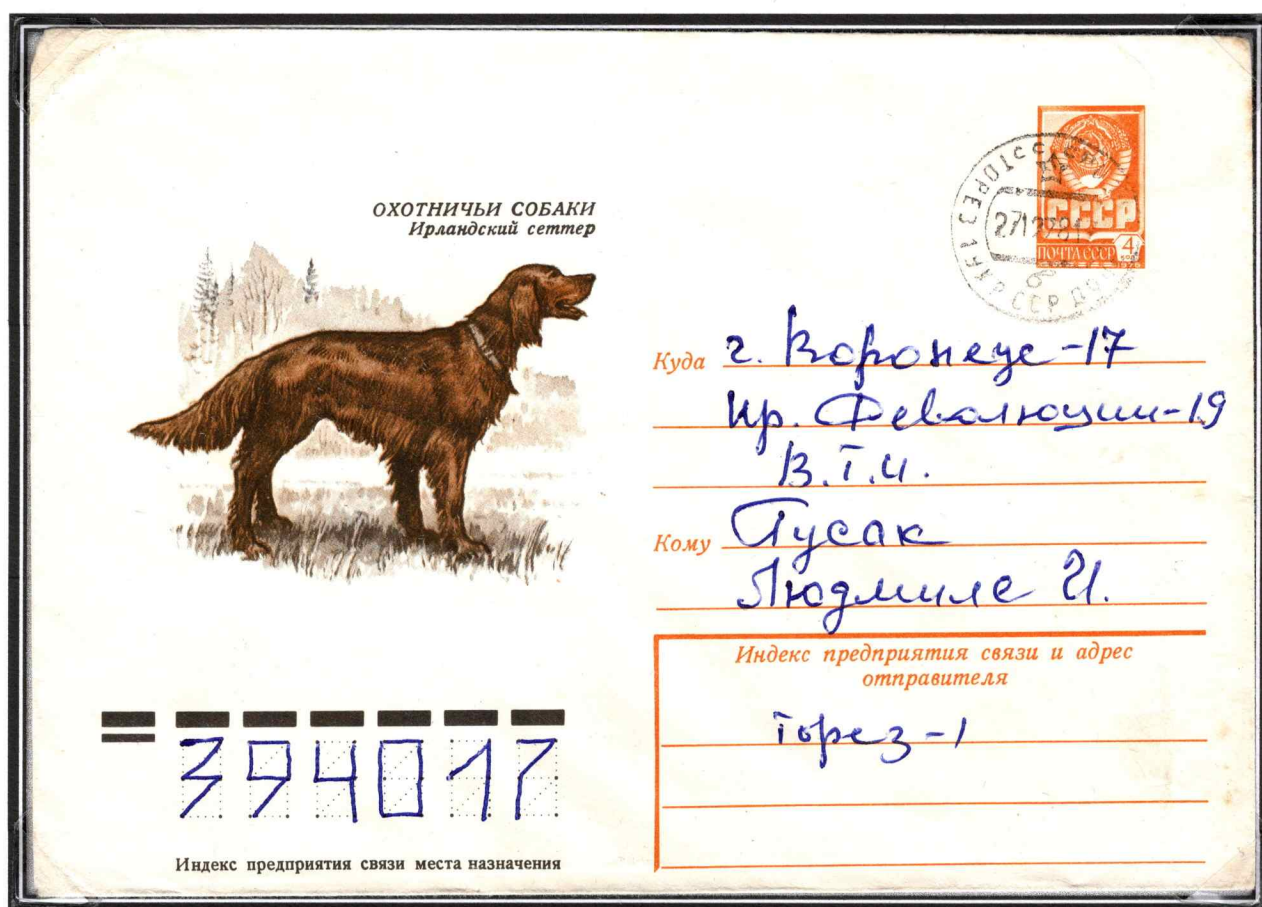 ОХОТНИЧЬИ СОБАКИ
Ирландский сеттер
СССР
ПОЧТА СССР 4
1978
ТОРЕЗ 1 УКР ССР
Куда г. Воронеж-17
пр. Революции-19
В.Т.И.
Кому Гусак
Людмиле И.
Индекс предприятия связи и адрес
отправителя
Торез-1
394017
Индекс предприятия связи места назначения